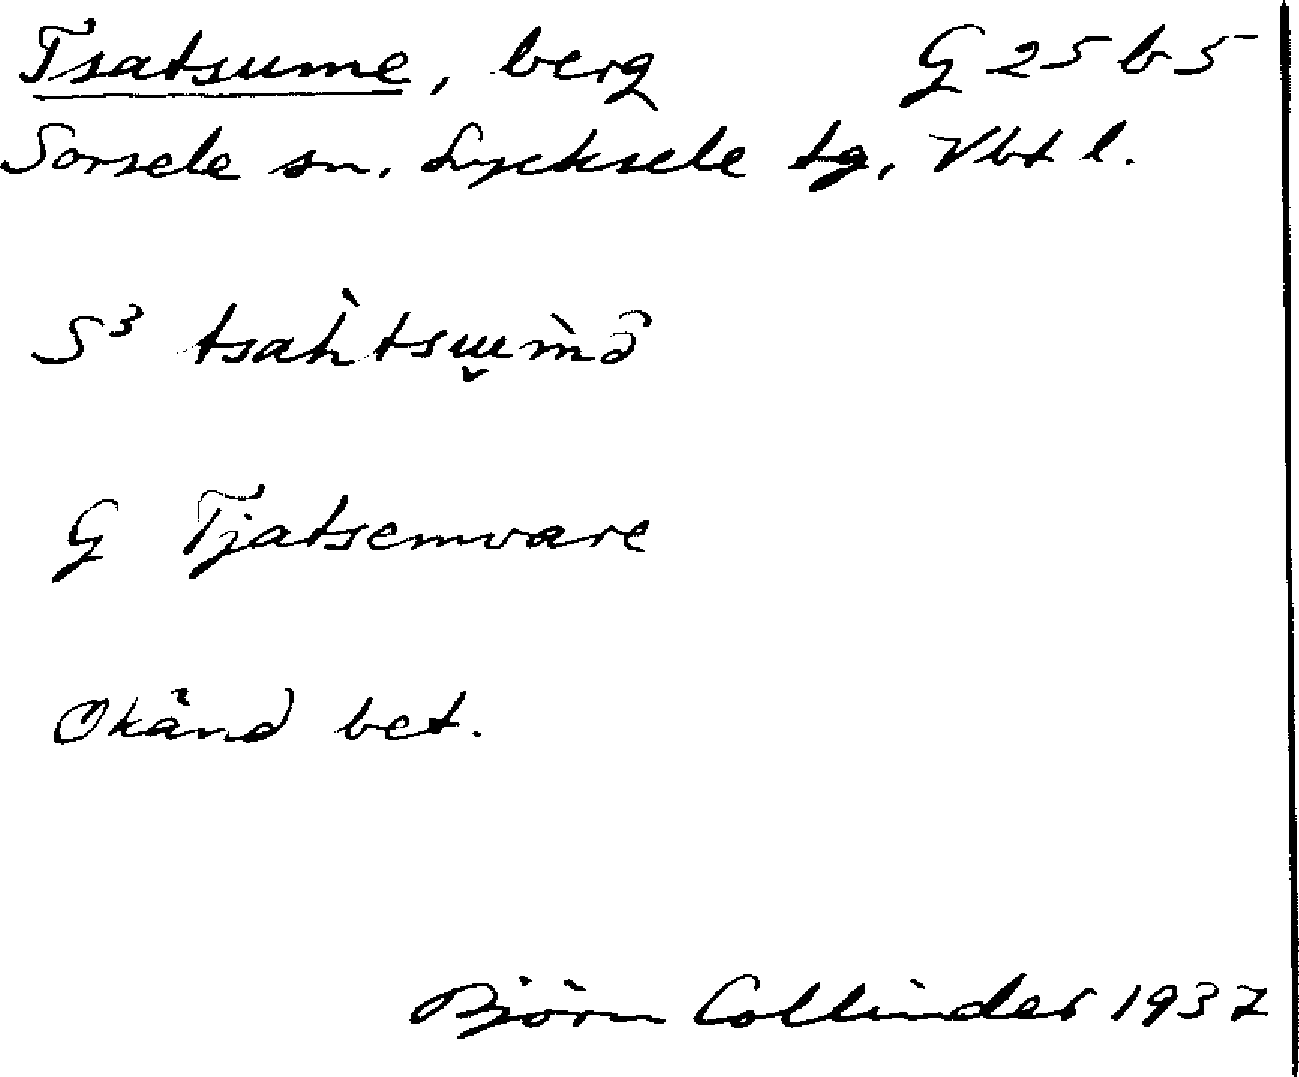 Tsatsume, berg G 25 b 5
Sorsele sn. Lycksele tg, Vbt l.
S³
G Tjatsemvare
Okänd bet.
Björn Collinder 1937